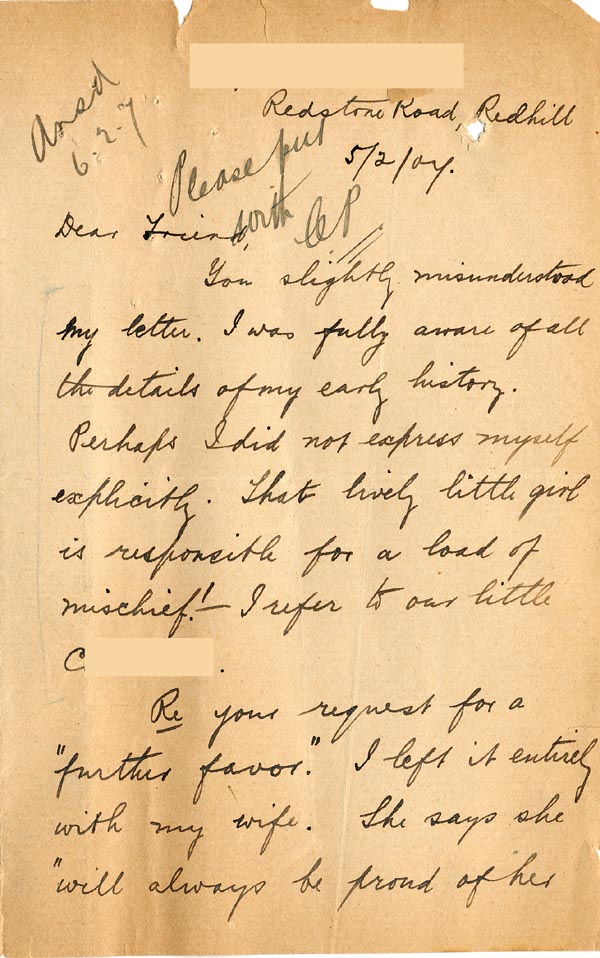 Redstone Road, Redhill
5/2/07.
Ansd
6-2-7
Please put
with CP
Dear Friend,
You slightly misunderstood
my letter. I was fully aware of all
the details of my early history.
Perhaps I did not express myself
explicitly. That lively little girl
is responsible for a load of
mischief! — I refer to our little
C
Re your request for a
"further favor." I left it entirely
with my wife. She says she
"will always be proud of her